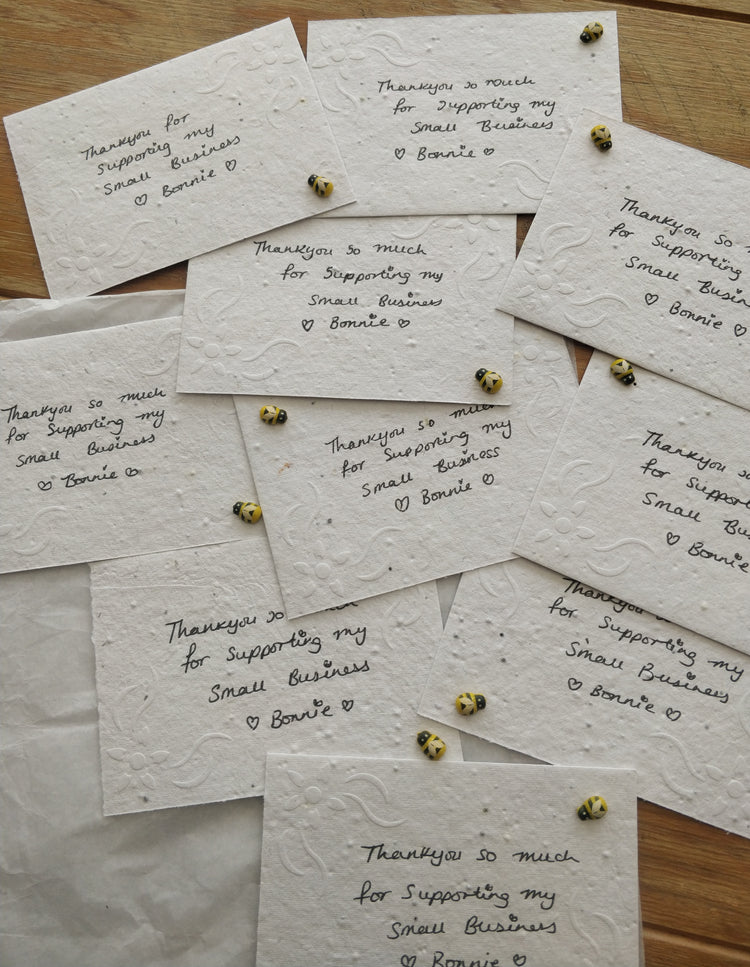 Thankyou for
supporting my
Small Business
♡ Bonnie ♡
Thankyou so much
for supporting my
Small Business
♡ Bonnie ♡
Thankyou so m
for Supporting
Small Busin
♡ Bonnie ♡
Thankyou so much
for Supporting my
Small Business
♡ Bonnie ♡
Thankyou so much
for Supporting my
Small Business
♡ Bonnie ♡
Thankyou so much
for Supporting my
Small Business
♡ Bonnie ♡
Thankyou so
for Support
Small Bus
♡ Bonnie
Thankyou so
for Supporting my
Small Business
♡ Bonnie ♡
Thankyou
for Supporting my
Small Business
♡ Bonnie ♡
Thankyou so much
for Supporting my
Small Business
♡ Bonnie ♡